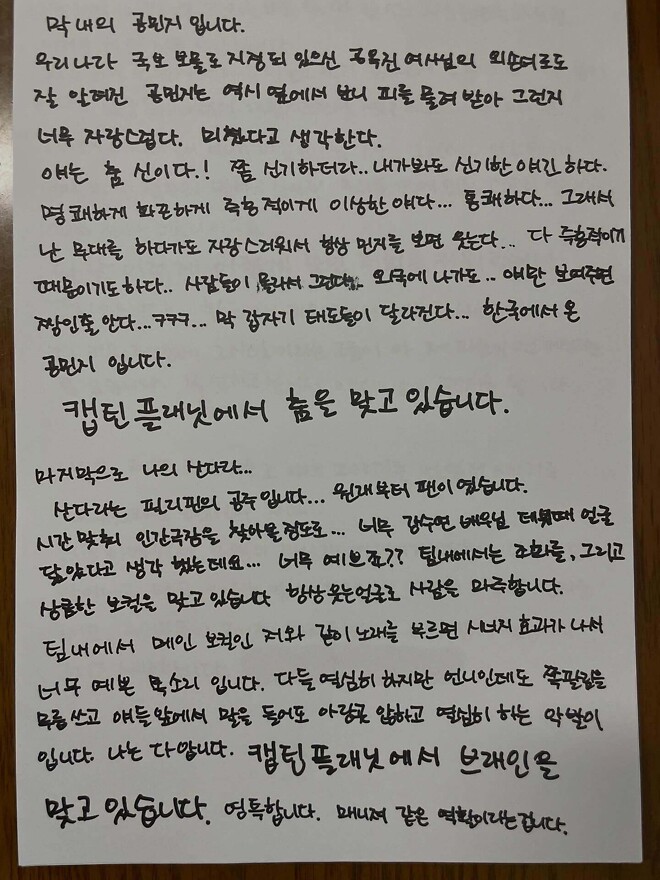 막내의 공민지 입니다.
우리나라 국오 보물로 지정되 있으신 공옥진 여사님의 외손녀로도
잘 알려진 공민지는 역시 옆에서 보니 피를 물려 받아 그런지
너무 자랑스럽다. 미쳤다고 생각한다.
얘는 춤 신이다.! 쫌 신기하더라.. 내가봐도 신기한 얘긴 하다.
명쾌하게 화끈하게 즉흥적이게 이상한 얘다... 통쾌하다... 그래서
난 무대를 하다가도 자랑스러워서 항상 민지를 보면 웃는다... 다 즉흥적이기
때문이기도하다.. 사람들이 몰라서 그런데.. 외국에 나가도.. 얘만 보여주면
짱인줄 안다...ㅋㅋㅋ... 막 갑자기 태도들이 달라진다... 한국에서 온
공민지 입니다.
캡틴플래닛에서 춤을 맞고 있습니다.
마지막으로 나의 산다라...
산다라는 필리핀의 공주입니다... 원래부터 팬이였습니다.
시간 맞춰 인간극장을 찾아볼정도로... 너무 강수연 배우님 데뷔때 얼굴
닮았다고 생각 했는데요... 너무 예쁘죠?? 팀내에서는 조화를, 그리고
상큼한 보컬을 맞고 있습니다 항상웃는얼굴로 사람을 마주합니다.
팀내에서 메인 보컬인 저와 같이 노래를 부르면 시너지 효과가 나서
너무 예쁜 목소리 입니다. 다들 열심히 하지만 언니인데도 쪽팔림을
무릅쓰고 얘들앞에서 말을 들어도 아랑곳 않하고 열심히 하는 악발이
입니다. 나는 다 압니다. 캡틴플래닛에서 브레인을
맞고 있습니다. 영특합니다. 매니져 같은 역활이라는겁니다.